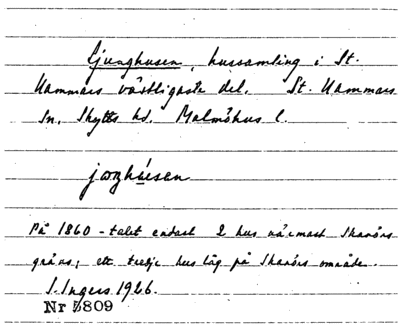 Ljunghusen, hussamling i St.
Hammars västligaste del. St. Hammars
sn, Skytts hd. Malmöhus l.
På 1860-talet endast 2 hus närmast Skanörs
gräns; ett tredje hus låg på Skanörs område.
S. Ingers 1926.
Nr 5809